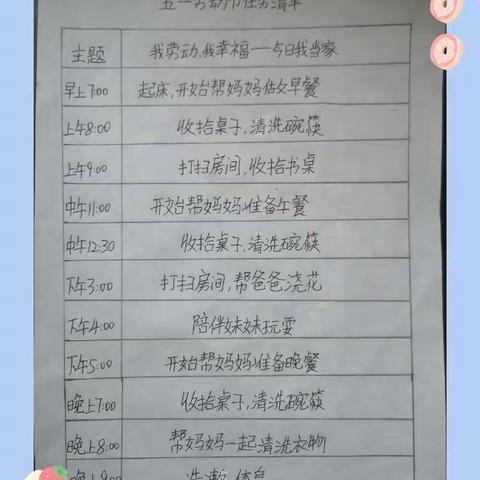 五一劳动节任务清单
主题 我劳动,我幸福一今日我当家
早上7:00 起床,开始帮妈妈做早餐
上午8:00 收拾桌子,清洗碗筷
上午9:00 打扫房间,收拾书桌
中午11:00 开始帮妈妈准备午餐
中午12:30 收拾桌子,清洗碗筷
下午3:00 打扫房间,帮爸爸浇花
下午4:00 陪伴妹妹玩耍
下午5:00 开始帮妈妈准备晚餐
晚上7:00 收拾桌子,清洗碗筷
晚上8:00 帮妈妈一起清洗衣物
晚上9:00 洗漱,休息